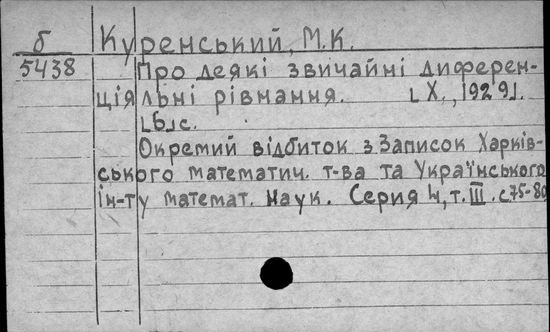 б Куренський, М.К.
5438 Про деякі звичайні диферен-
ціяльні рівнання. [Х., 1929].
[6]с.
Окремий відбиток з Записок Харків-
ського математич. т-ва та Українського
ін-ту математ. наук. Серия 4, т. III. с. 75-80